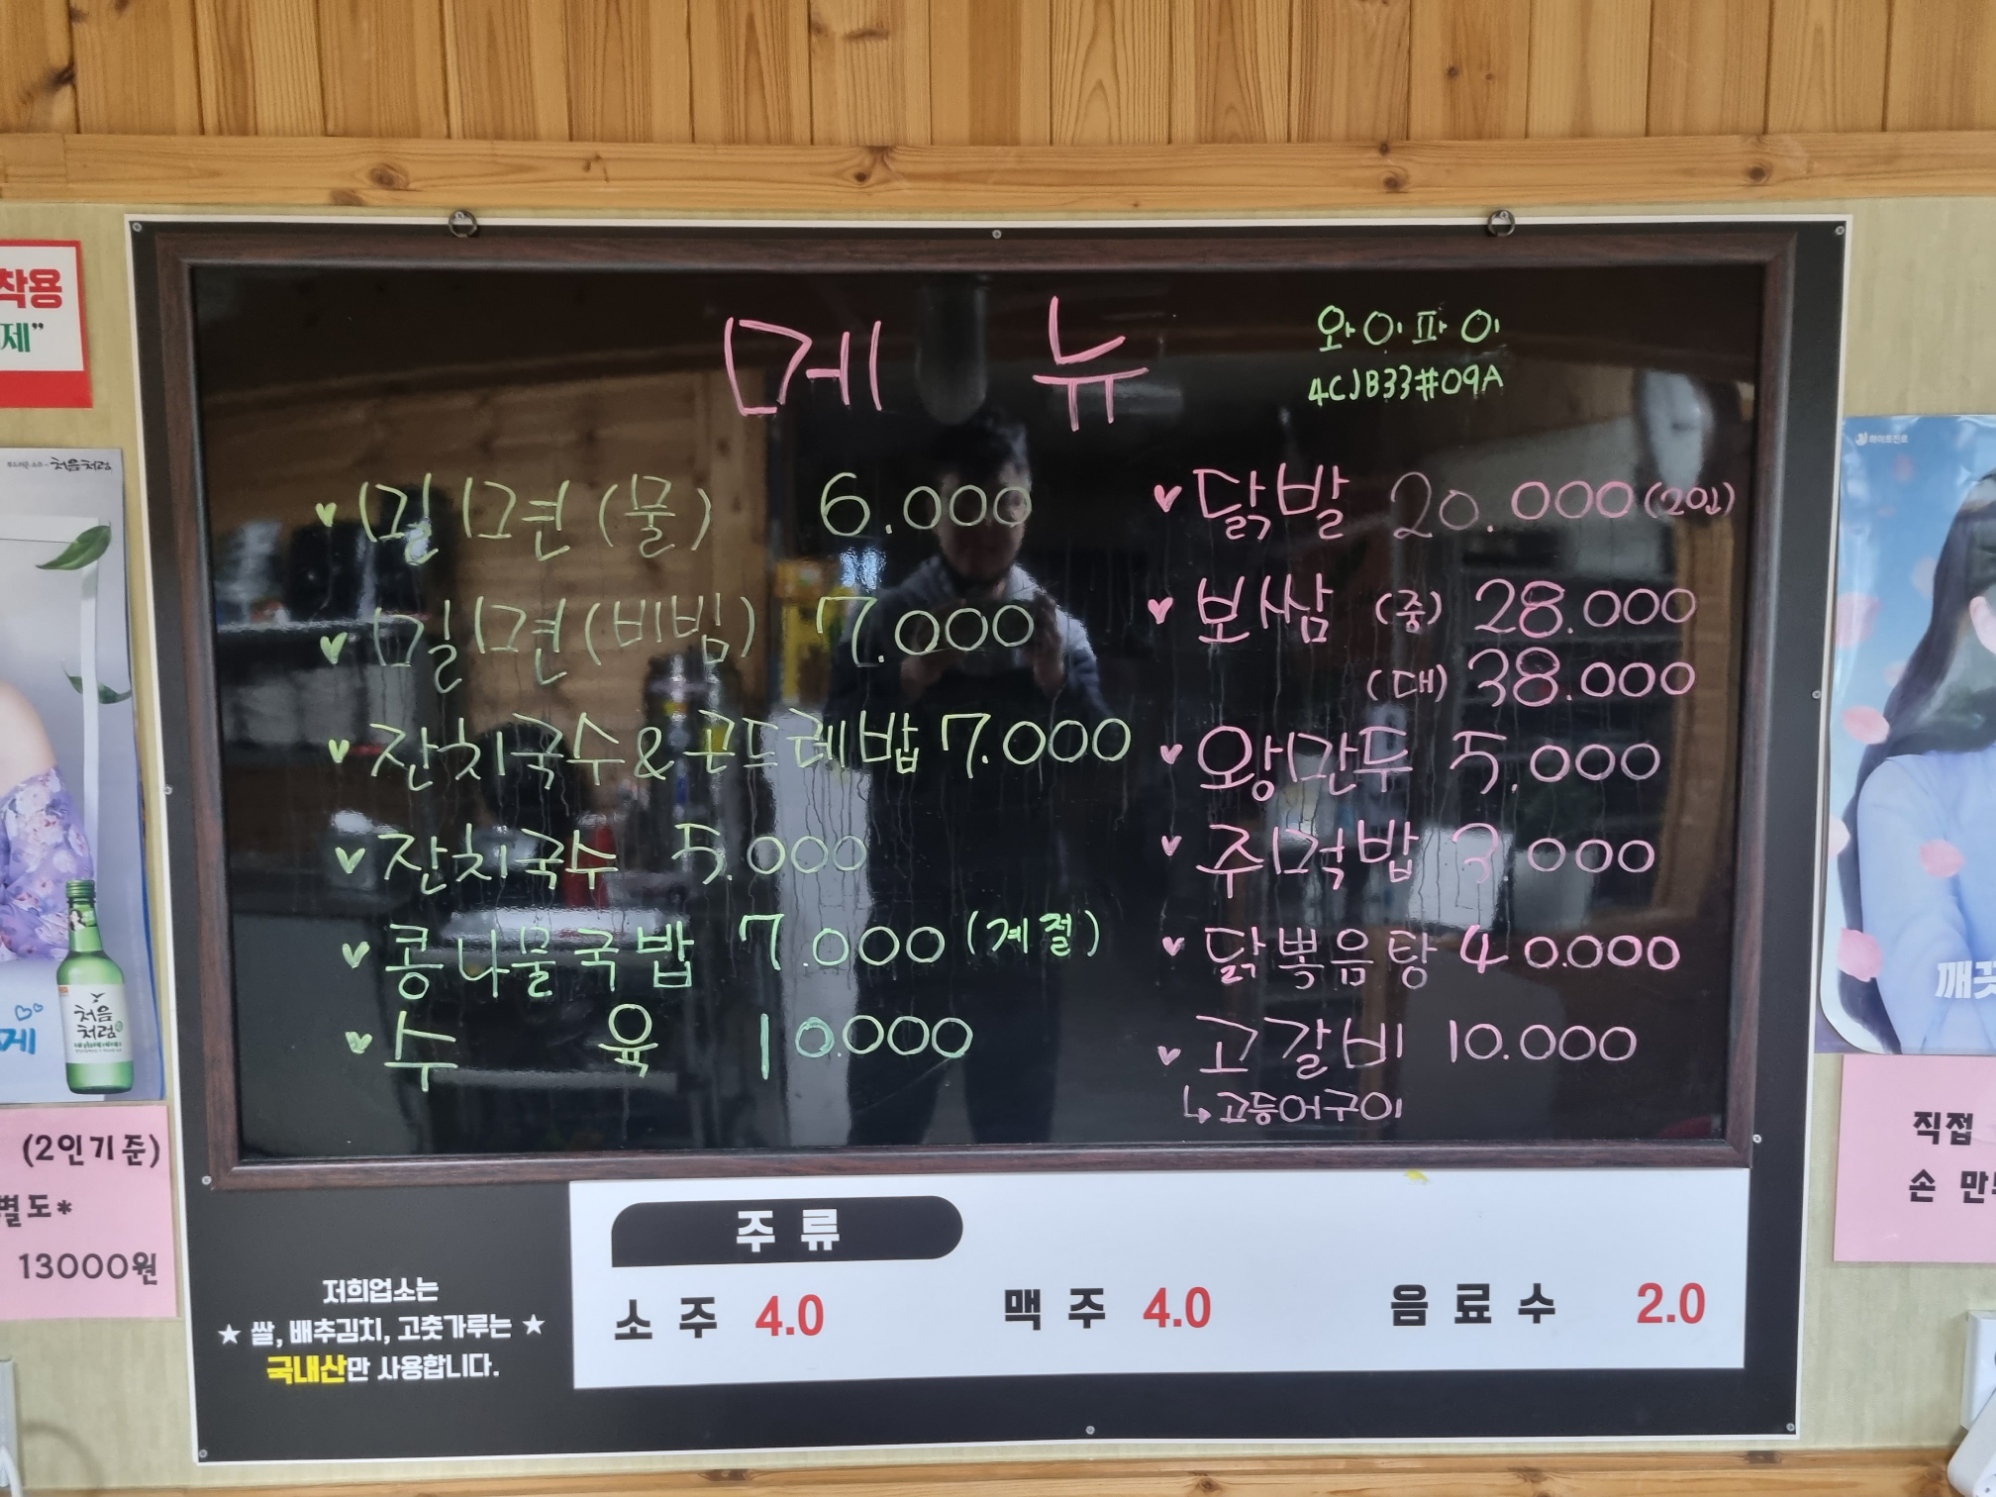 메뉴
와이파이
4CJB33#09A
밀면(물) 6.000
밀면(비빔) 7.000
잔치국수&곤드레밥 7.000
잔치국수 5.000
콩나물국밥 7.000(계절)
수육 10.000
닭발 20.000(2인)
보쌈 (중) 28.000
(대) 38.000
왕만두 5.000
주먹밥 3.000
닭볶음탕 40.000
고갈비 10.000
↳고등어구이
주류
소주 4.0 맥주 4.0 음료수 2.0
저희업소는
★ 쌀, 배추김치, 고춧가루는 ★
국내산만 사용합니다.
착용
제"
처음처럼
처음
처럼
게
(2인기준)
별도*
13000원
하이트진로
깨끗
직접
손 만